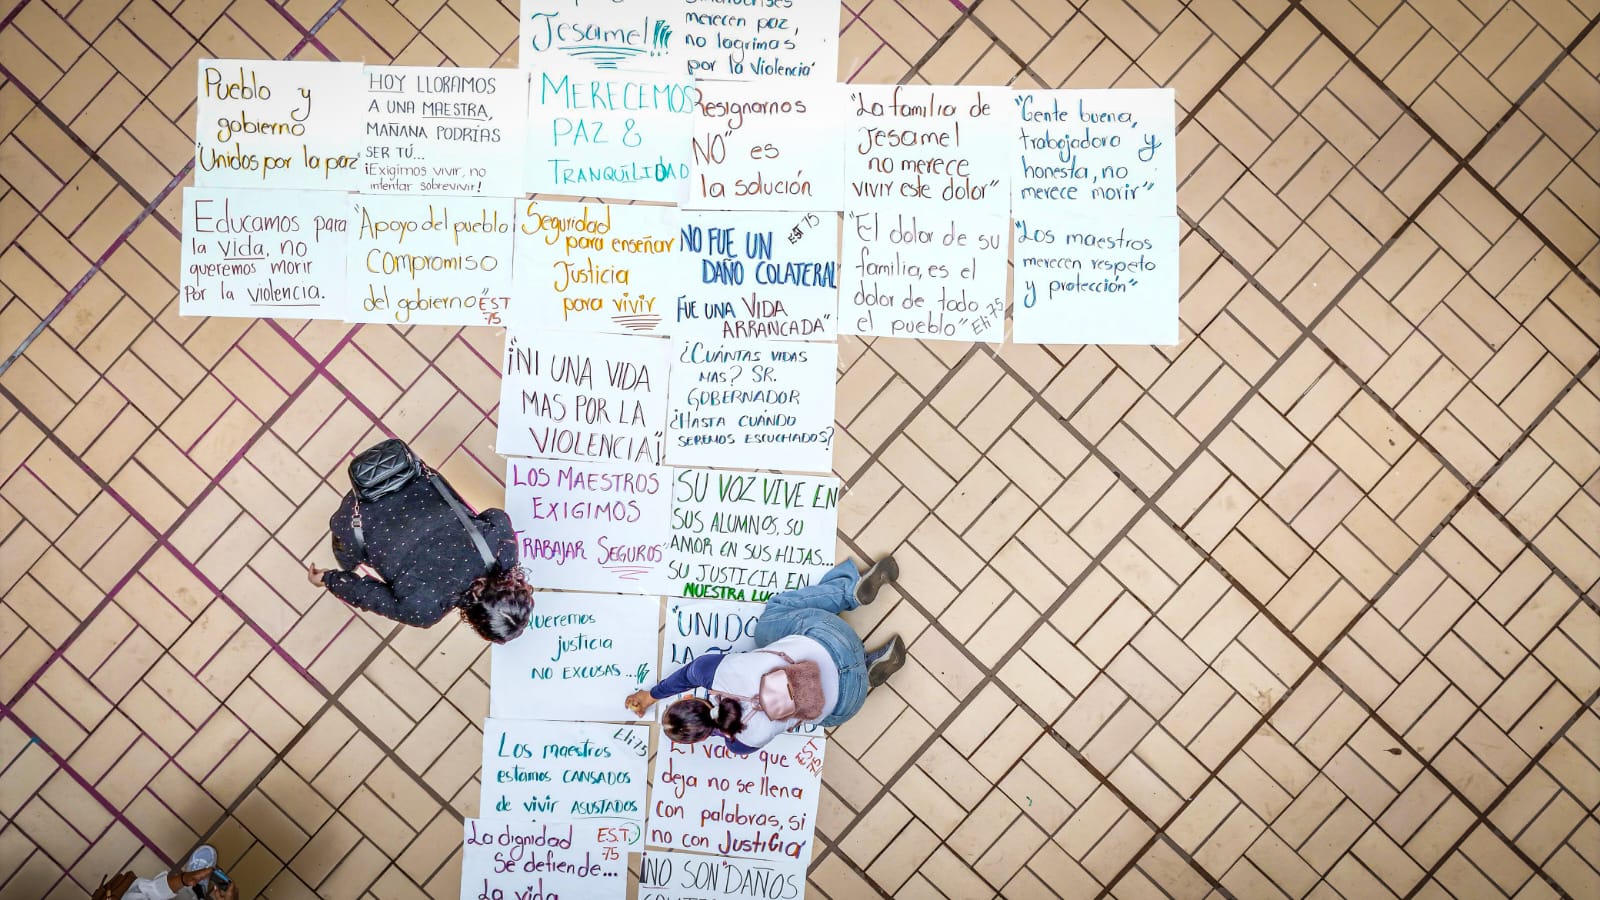 Jesamel!!!
merecen paz,
no lagrimas
por la violencia"
Pueblo y
gobierno
"Unidos por la paz"
HOY LLORAMOS
A UNA MAESTRA,
MAÑANA PODRÍAS
SER TÚ...
¡Exigimos vivir, no
intentar sobrevivir!
MERECEMOS
PAZ &
TRANQUILIDAD
Resignarnos
"NO" es
la solución
"La familia de
Jesamel
no merece
vivir este dolor"
"Gente buena,
trabajadora y
honesta, no
merece morir"
Educamos para
la vida, no
queremos morir
Por la violencia.
"Apoyo del pueblo
compromiso
del gobierno"
EST
75
Seguridad
para enseñar
Justicia
para vivir
EST 75
NO FUE UN
DAÑO COLATERAL
FUE UNA VIDA
ARRANCADA"
"El dolor de su
familia, es el
dolor de todo
el pueblo"
Eli 75
"Los maestros
merecen respeto
y protección"
"¡NI UNA VIDA
MAS POR LA
VIOLENCIA!
¿CUÁNTAS VIDAS
MAS? SR.
GOBERNADOR
¿HASTA CUÁNDO
SEREMOS ESCUCHADOS?
LOS MAESTROS
EXIGIMOS
TRABAJAR SEGUROS"
SU VOZ VIVE EN
SUS ALUMNOS, SU
AMOR EN SUS HIJAS...
SU JUSTICIA EN
NUESTRA
Queremos
justicia
NO EXCUSAS...!!!
"UNIDO
LA
Eli 75
Los maestros
estamos CANSADOS
de vivir ASUSTADOS
EST
El que
deja no se llena
con palabras, si
no con Justicia
La dignidad
Se defiende...
La vida
E.S.T.
75
¡NO SON "DAÑOS